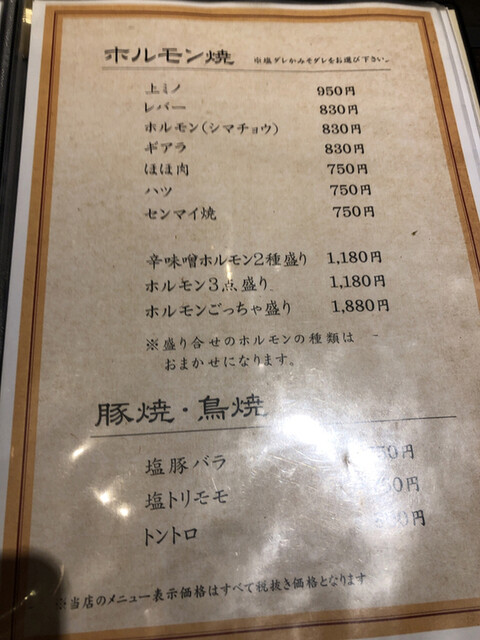 ホルモン焼 ※塩ダレかみそダレをお選び下さい。
上ミノ 950円
レバー 830円
ホルモン(シマチョウ) 830円
ギアラ 830円
ほほ肉 750円
ハツ 750円
センマイ焼 750円
辛味噌ホルモン2種盛り 1,180円
ホルモン3点盛り 1,180円
ホルモンごっちゃ盛り 1,880円
※盛り合せのホルモンの種類は
おまかせになります。
豚焼・鳥焼
塩豚バラ 円
塩トリモモ 円
トントロ 円
※当店のメニュー表示価格はすべて税抜き価格となります